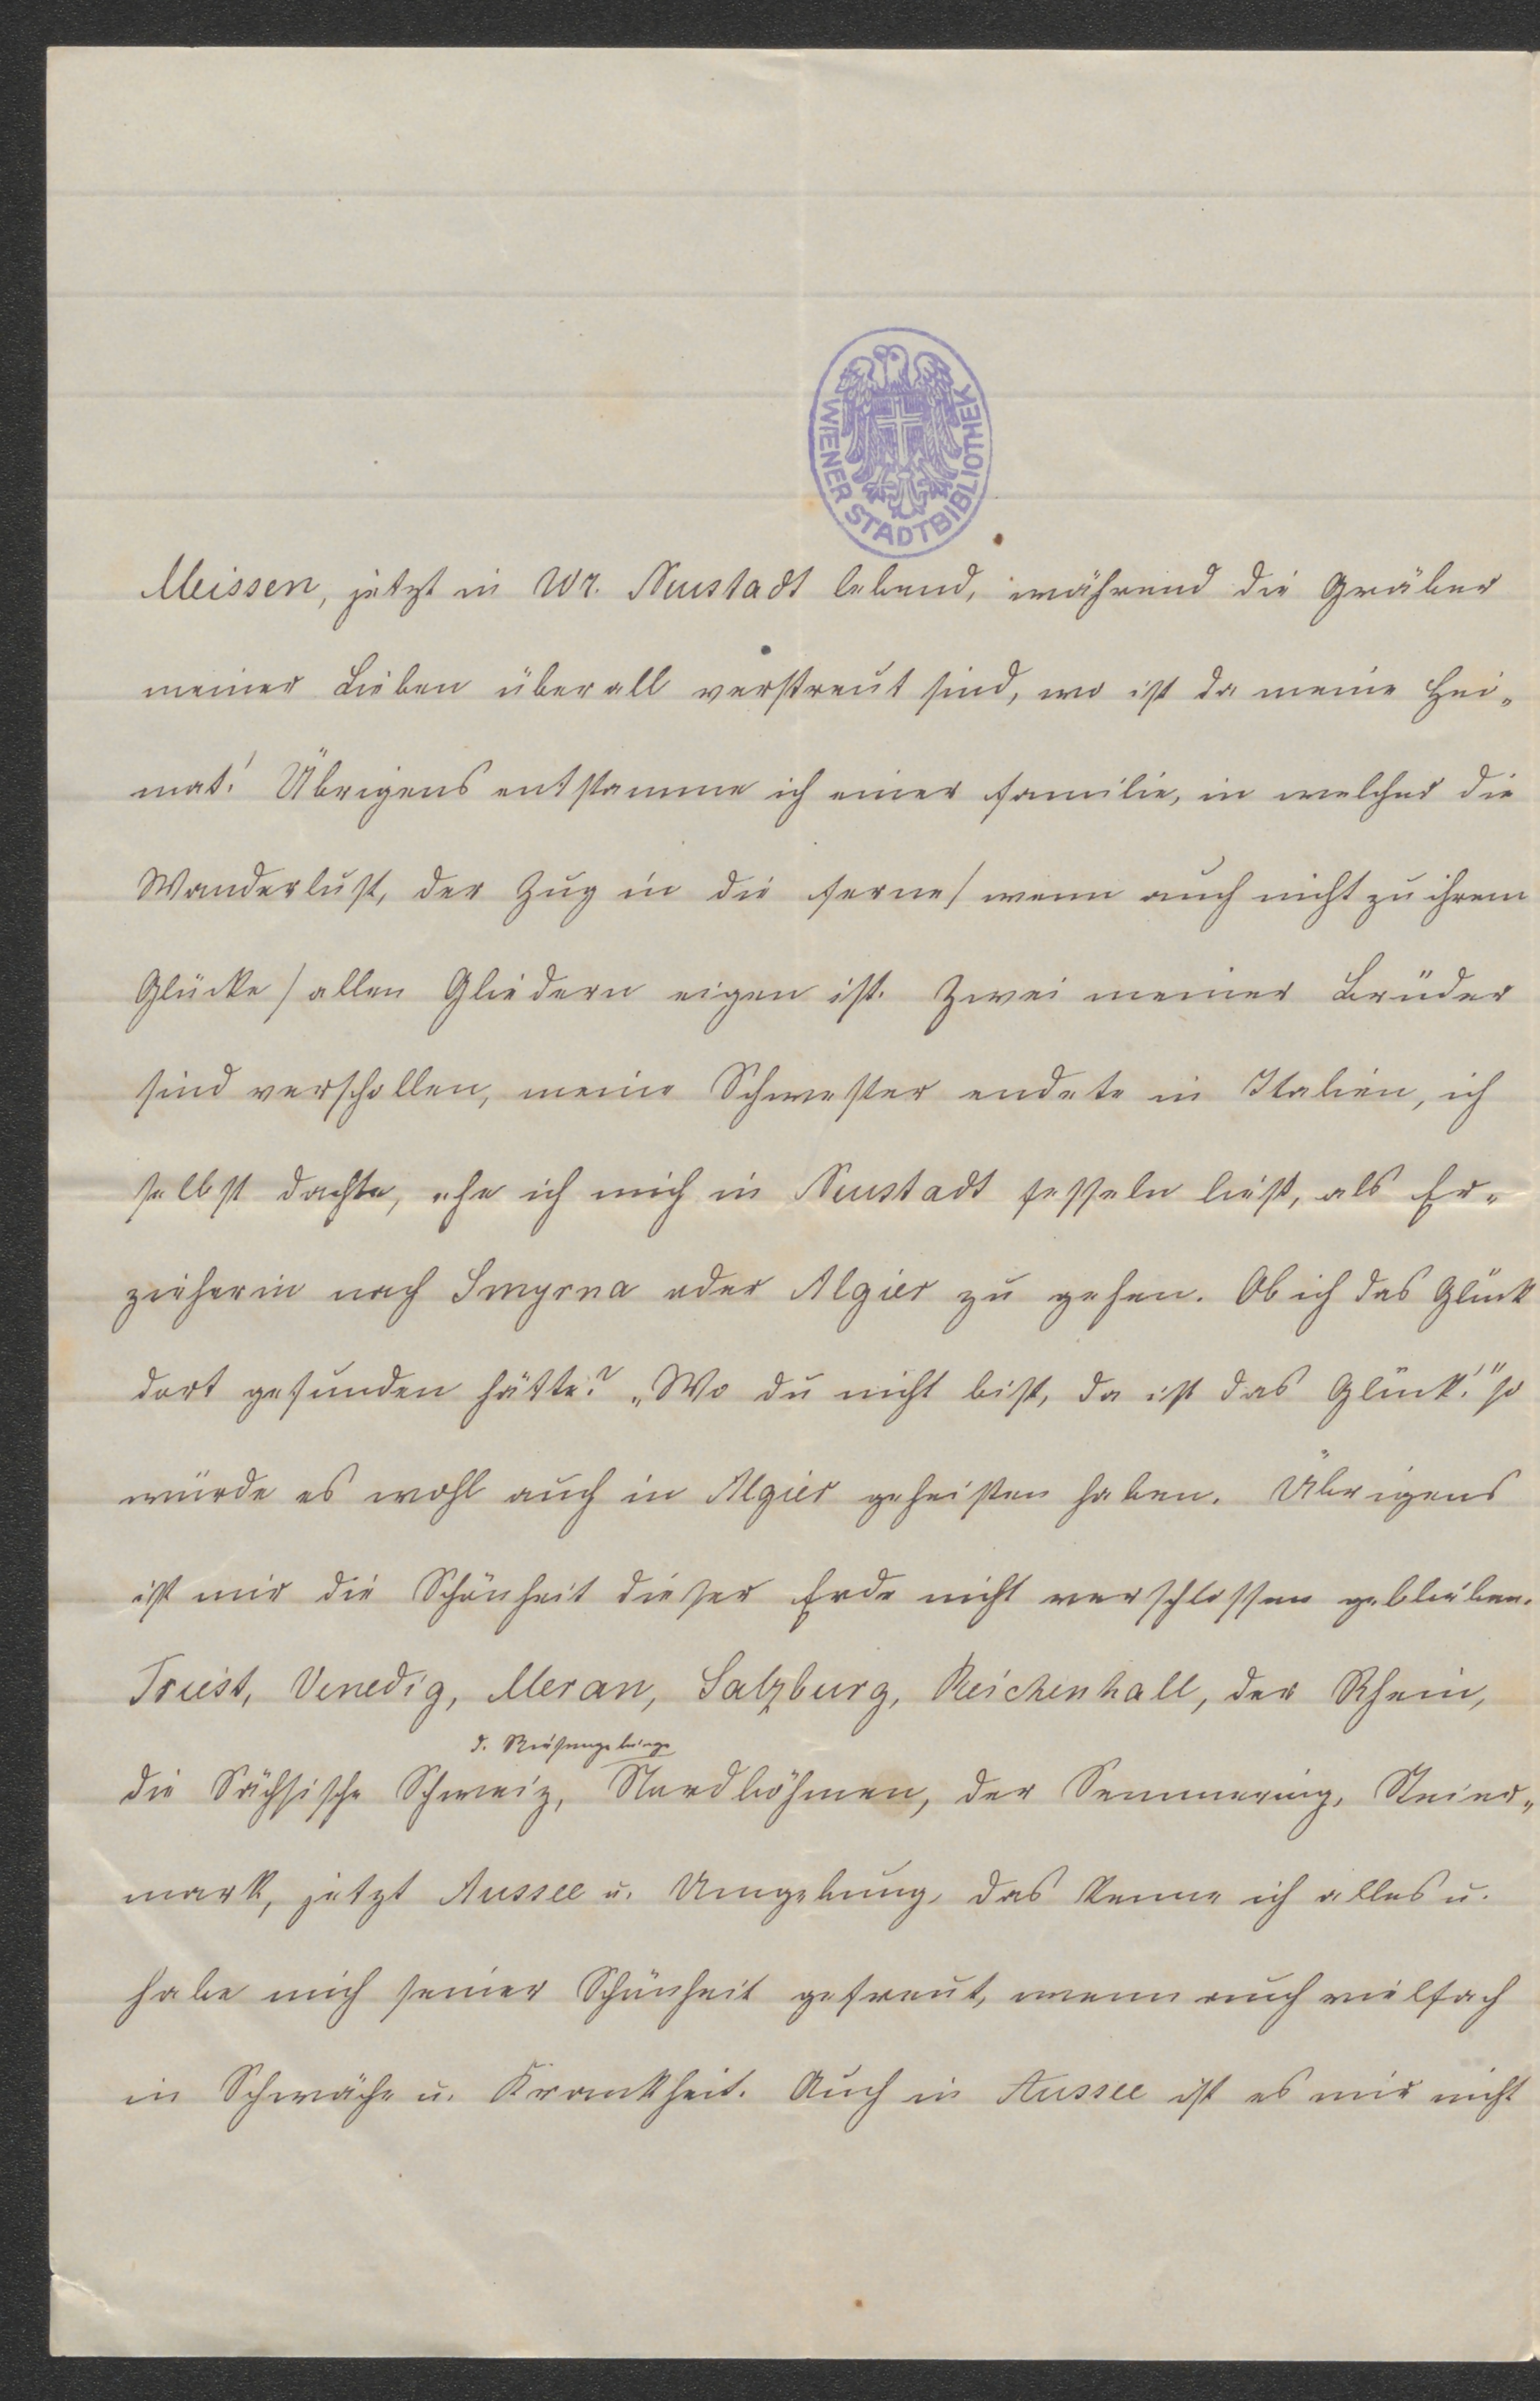 WIENER STADTBIBLIOTHEK
Meissen, jetzt in Wr. Neustadt lebend, während die Gräber
meiner Lieben überall verstreut sind, wo ist da meine Hei-
mat! Übrigens entstamme ich einer Familie, in welcher die
Wanderlust, der Zug in die Ferne / wenn auch nicht zu ihrem
Glücke / allen Gliedern eigen ist. Zwei meiner Brüder
sind verschollen, meine Schwester endete in Italien, ich
selbst dachte, ehe ich mich in Neustadt fesseln ließ, als Er-
zieherin nach Smyrna oder Algier zu gehen. Ob ich das Glück
dort gefunden hätte? „Wo du nicht bist, da ist das Glück!" so
würde es wohl auch in Algier geheißen haben. Übrigens
ist mir die Schönheit dieser Erde nicht verschlossen geblieben.
Triest, Venedig, Meran, Salzburg, Reichenhall, der Rhein,
d. Riesengebirge
die Sächsische Schweiz, Nordböhmen, der Semmering, Steier-
mark, jetzt Aussee u. Umgebung, das kenne ich alles u.
habe mich seiner Schönheit gefreut, wenn auch vielfach
in Schwäche u. Krankheit. Auch in Aussee ist es mir nicht